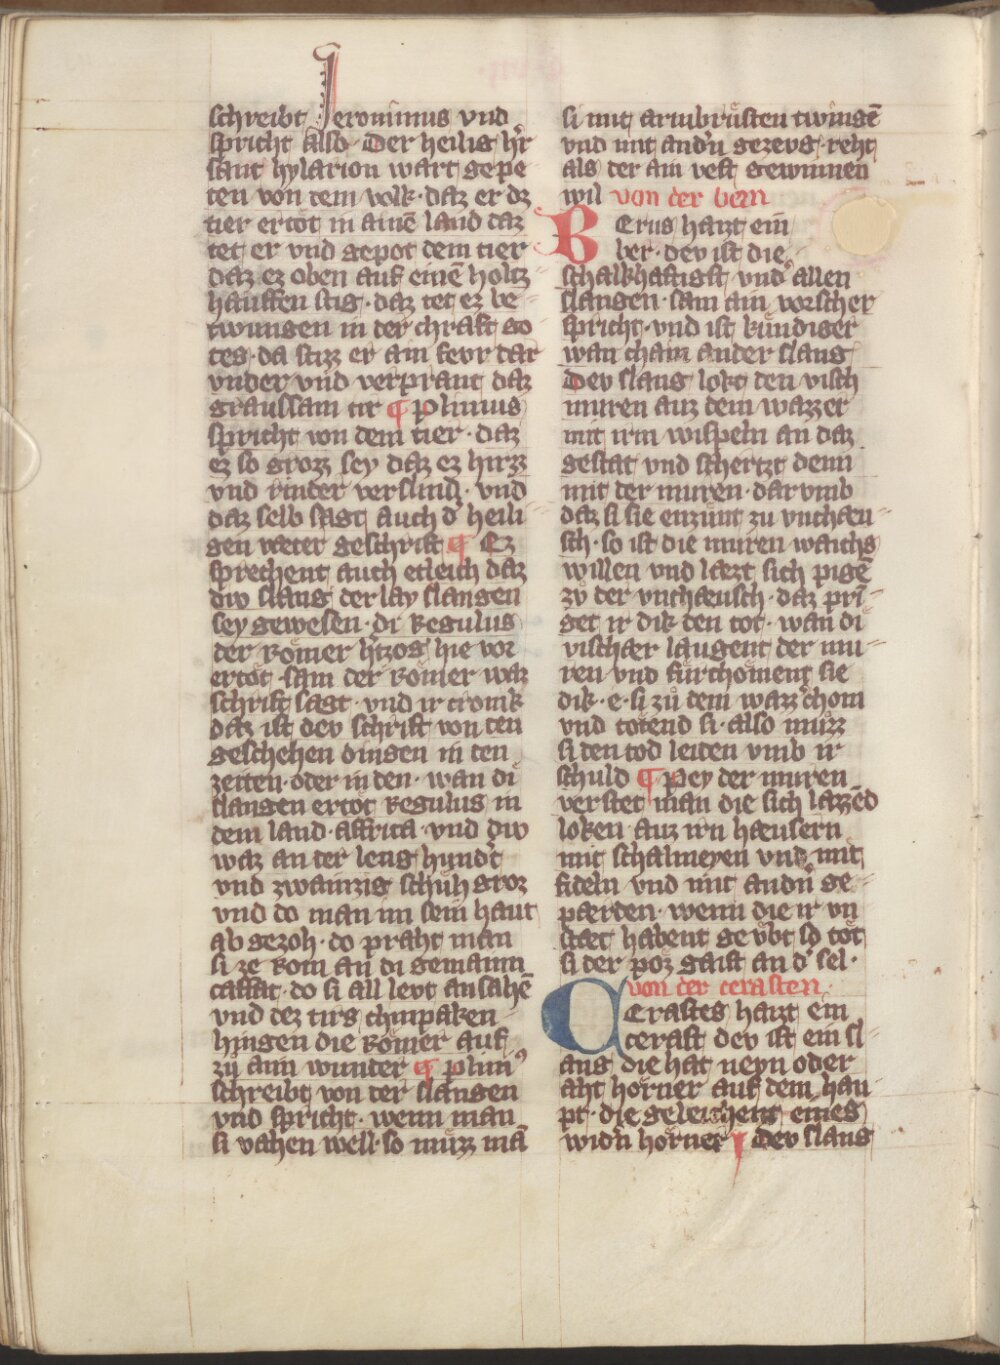 schreibt Jeronimus vnd
spricht also · Der heilig hr̄
sant hylarion wart gepe
ten von dem volk · daz er dz
tier ertöt in ainē land daz
tet er vnd gepot dem tier
daz ez oben auf einē holtz
hauffen stig · daz tet ez be-
twungen in der chraft go
tes · da stiez er ain fevr dar
vnder vnd verprant daz
graussam tir ¶ Plinius
spricht von dem tier · daz
ez so grozz sey daz ez hirzz
vnd rinder verslind · vnd
daz selb sagt auch d' heili
gen veter geschrift ¶ Ez
sprechent auch etleich daz
div slang der lay slangen
sey gewesen · di Regulus
der Römer h'tzog hie vor
ertöt · sam der Römer war
schrift sagt · vnd ir cronik
daz ist dev schrift von den
geschehen dingen in den
zeiten · oder in den · wan di
slangen ertöt Regulus in
dem land · affrica · vnd div
waz an der leng hund't
vnd zwainzig schůh groz
vnd do man im sein haut
ab gezoh · do praht man
si ze Rom an di gemainn
caffat · do si all levt ansahē
vnd dez tirs chinpaken
hingen die Römer auf
zů aim wunder ¶ Plini9
schreibt von der slangen
vnd spricht · wenn man
si vahen well · so můzz mā
si mit armbrüsten twingē
vnd mit and'n gezevg · reht
als der ain vest gewinnen
wil von der bern
Berus haizt ein
ber · dev ist die
schalkhaftigst vnd' allen
slangen · sam ain vorscher
spricht · vnd ist kündiger
wan chain ander slang
Dev slang lokt den visch
muren auz dem wazzer
mit irm wispeln an daz
gestat vnd schertzt denn
mit der muren · darvmb
daz si sie enzünt zu vnchäu-
sch · so ist die muren waichs
willen vnd laezt sich pigē
zů der vnchaeusch · daz prī-
get ir dik den tot · wan di
vischaer laugent der mu-
ren vnd fürchoment sie
dik · e · si zů dem wazz'chom
vnd tötend si · also můzz
si den tod leiden vmb ir
schuld ¶ Pey der muren
verstet man die sich lazzēd
loken auz irn haeusern
mit schalmeyen vnd mit
fideln vnd mit andn' ge-
paerden · wenn die ir vn
staet habent geübt so töt
si der poz gaist an d' sel ·
von der cerasten ·
Cerastes haizt ein
cerast dev ist ein sl
ang die hat neyn oder
aht hörner auf dem hau
pt · die geleichent eines
wid'n hörner ¶ Dev slang